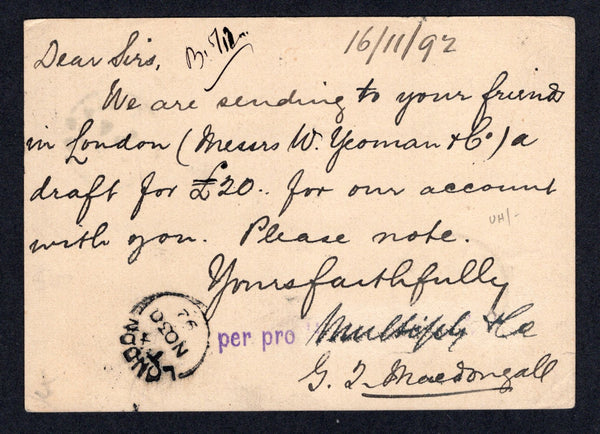 16/11/92
Dear Sirs,
We are sending to your friends
in London (Messrs W. Yeoman & Co) a
draft for £20.. for our account
with you. Please note.
Yours faithfully
per pro Multiply & Co
G. I. Macdongall
LONDON
NO30
92